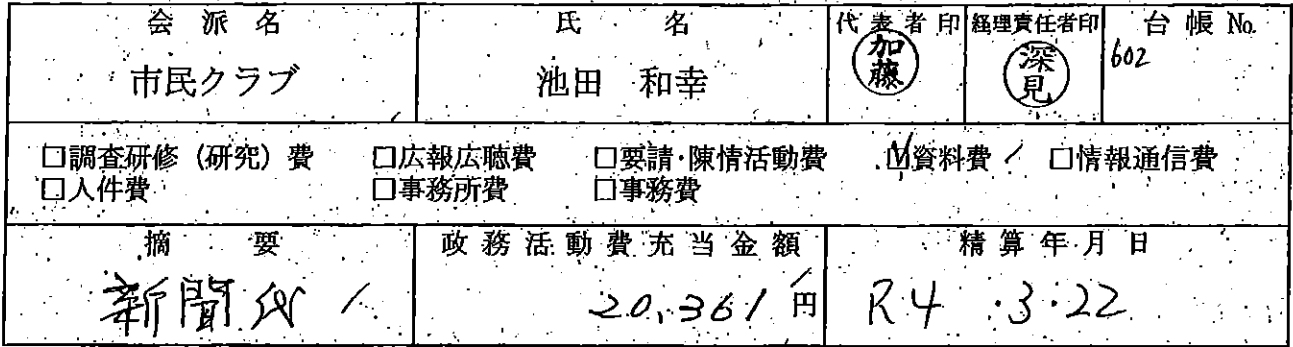 会派名 氏名 代表者印 経理責任者印 台帳No.
市民クラブ 池田 和幸 加藤 深見 602
□調査研修（研究）費 □広報広聴費 □要請・陳情活動費 ☑資料費 □情報通信費
□人件費 □事務所費 □事務費
摘要 政務活動費充当金額 精算年月日
新聞代 20,361円 R4.3.22